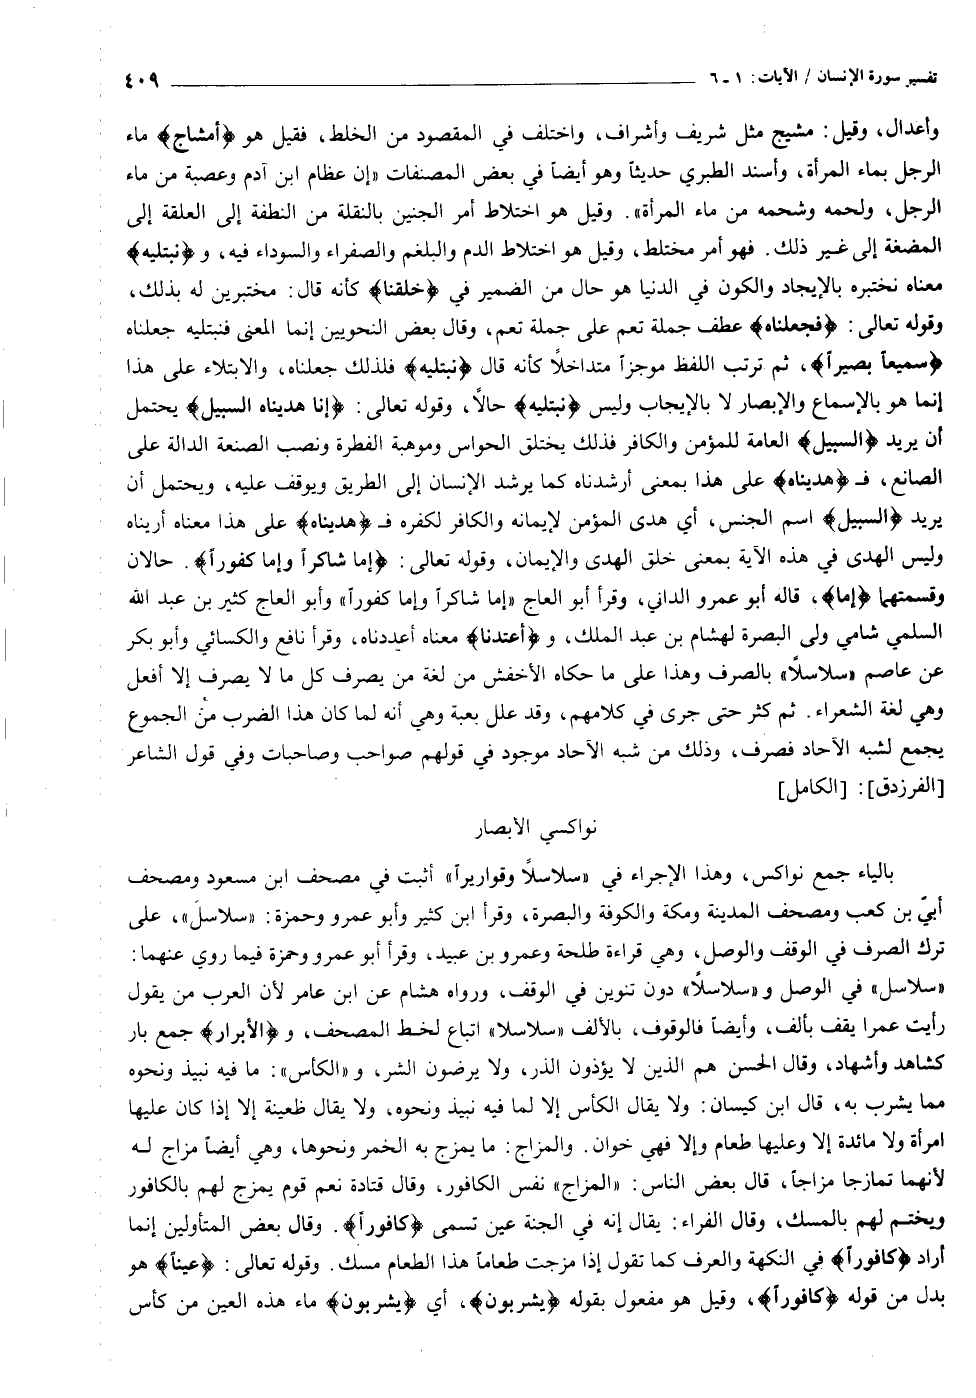 تفسير سورة الإنسان / الآيات: ١ ـ ٦ ٤٠٩
وأعدال، وقيل: مشيج مثل شريف وأشراف، واختلف في المقصود من الخلط، فقيل هو ﴿أمشاج﴾ ماء
الرجل بماء المرأة، وأسند الطبري حديثاً وهو أيضاً في بعض المصنفات «إن عظام ابن آدم وعصبة من ماء
الرجل، ولحمه وشحمه من ماء المرأة». وقيل هو اختلاط أمر الجنين بالنقلة من النطفة إلى العلقة إلى
المضغة إلى غير ذلك. فهو أمر مختلط، وقيل هو اختلاط الدم والبلغم والصفراء والسوداء فيه، و ﴿نبتليه﴾
معناه نختبره بالإيجاد والكون في الدنيا هو حال من الضمير في ﴿خلقنا﴾ كأنه قال: مختبرين له بذلك،
وقوله تعالى: ﴿فجعلناه﴾ عطف جملة تعم على جملة تعم، وقال بعض النحويين إنما المعنى فنبتليه جعلناه
﴿سميعاً بصيراً﴾، ثم ترتب اللفظ موجزاً متداخلاً كأنه قال ﴿نبتليه﴾ فلذلك جعلناه، والابتلاء على هذا
إنما هو بالإسماع والإبصار لا بالإيجاب وليس ﴿نبتليه﴾ حالاً، وقوله تعالى: ﴿إنا هديناه السبيل﴾ يحتمل
أن يريد ﴿السبيل﴾ العامة للمؤمن والكافر فذلك يختلق الحواس وموهبة الفطرة ونصب الصنعة الدالة على
الصانع، فـ ﴿هديناه﴾ على هذا بمعنى أرشدناه كما يرشد الإنسان إلى الطريق ويوقف عليه، ويحتمل أن
يريد ﴿السبيل﴾ اسم الجنس، أي هدى المؤمن لإيمانه والكافر لكفره فـ ﴿هديناه﴾ على هذا معناه أريناه
وليس الهدى في هذه الآية بمعنى خلق الهدى والإيمان، وقوله تعالى: ﴿إما شاكراً وإما كفوراً﴾. حالان
وقسمتهما ﴿إما﴾، قاله أبو عمرو الداني، وقرأ أبو العاج «إما شاكراً وإما كفوراً» وأبو العاج كثير بن عبد الله
السلمي شامي ولى البصرة لهشام بن عبد الملك، و ﴿أعتدنا﴾ معناه أعددناه، وقرأ نافع والكسائي وأبو بكر
عن عاصم «سلاسلاً» بالصرف وهذا على ما حكاه الأخفش من لغة من يصرف كل ما لا يصرف إلا أفعل
وهي لغة الشعراء. ثم كثر حتى جرى في كلامهم، وقد علل بعبة وهي أنه لما كان هذا الضرب من الجموع
يجمع لشبه الآحاد فصرف، وذلك من شبه الآحاد موجود في قولهم صواحب وصاحبات وفي قول الشاعر
[الفرزدق]: [الكامل]
نواكسي الأبصار
بالياء جمع نواكس، وهذا الإجراء في «سلاسلاً وقواريراً» أثبت في مصحف ابن مسعود ومصحف
أبيّ بن كعب ومصحف المدينة ومكة والكوفة والبصرة، وقرأ ابن كثير وأبو عمرو وحمزة: «سلاسلَ»، على
ترك الصرف في الوقف والوصل، وهي قراءة طلحة وعمرو بن عبيد، وقرأ أبو عمرو وحمزة فيما روي عنهما:
«سلاسل» في الوصل و«سلاسلاً» دون تنوين في الوقف، ورواه هشام عن ابن عامر لأن العرب من يقول
رأيت عمرا يقف بألف، وأيضاً فالوقوف، بالألف «سلاسلا» اتباع لخط المصحف، و ﴿الأبرار﴾ جمع بار
كشاهد وأشهاد، وقال الحسن هم الذين لا يؤذون الذر، ولا يرضون الشر، و «الكأس»: ما فيه نبيذ ونحوه
مما يشرب به، قال ابن كيسان: ولا يقال الكأس إلا لما فيه نبيذ ونحوه، ولا يقال ظعينة إلا إذا كان عليها
امرأة ولا مائدة إلا وعليها طعام وإلا فهي خوان. والمزاج: ما يمزج به الخمر ونحوها، وهي أيضاً مزاج لـه
لأنهما تمازجا مزاجاً، قال بعض الناس: «المزاج» نفس الكافور، وقال قتادة نعم قوم يمزج لهم بالكافور
ويختـم لهم بالمسك، وقال الفراء: يقال إنه في الجنة عين تسمى ﴿كافوراً﴾. وقال بعض المتأولين إنما
أراد ﴿كافوراً﴾ في النكهة والعرف كما تقول إذا مزجت طعاماً هذا الطعام مسك. وقوله تعالى: ﴿عيناً﴾ هو
بدل من قوله ﴿كافوراً﴾، وقيل هو مفعول بقوله ﴿يشربون﴾، أي ﴿يشربون﴾ ماء هذه العين من كأس